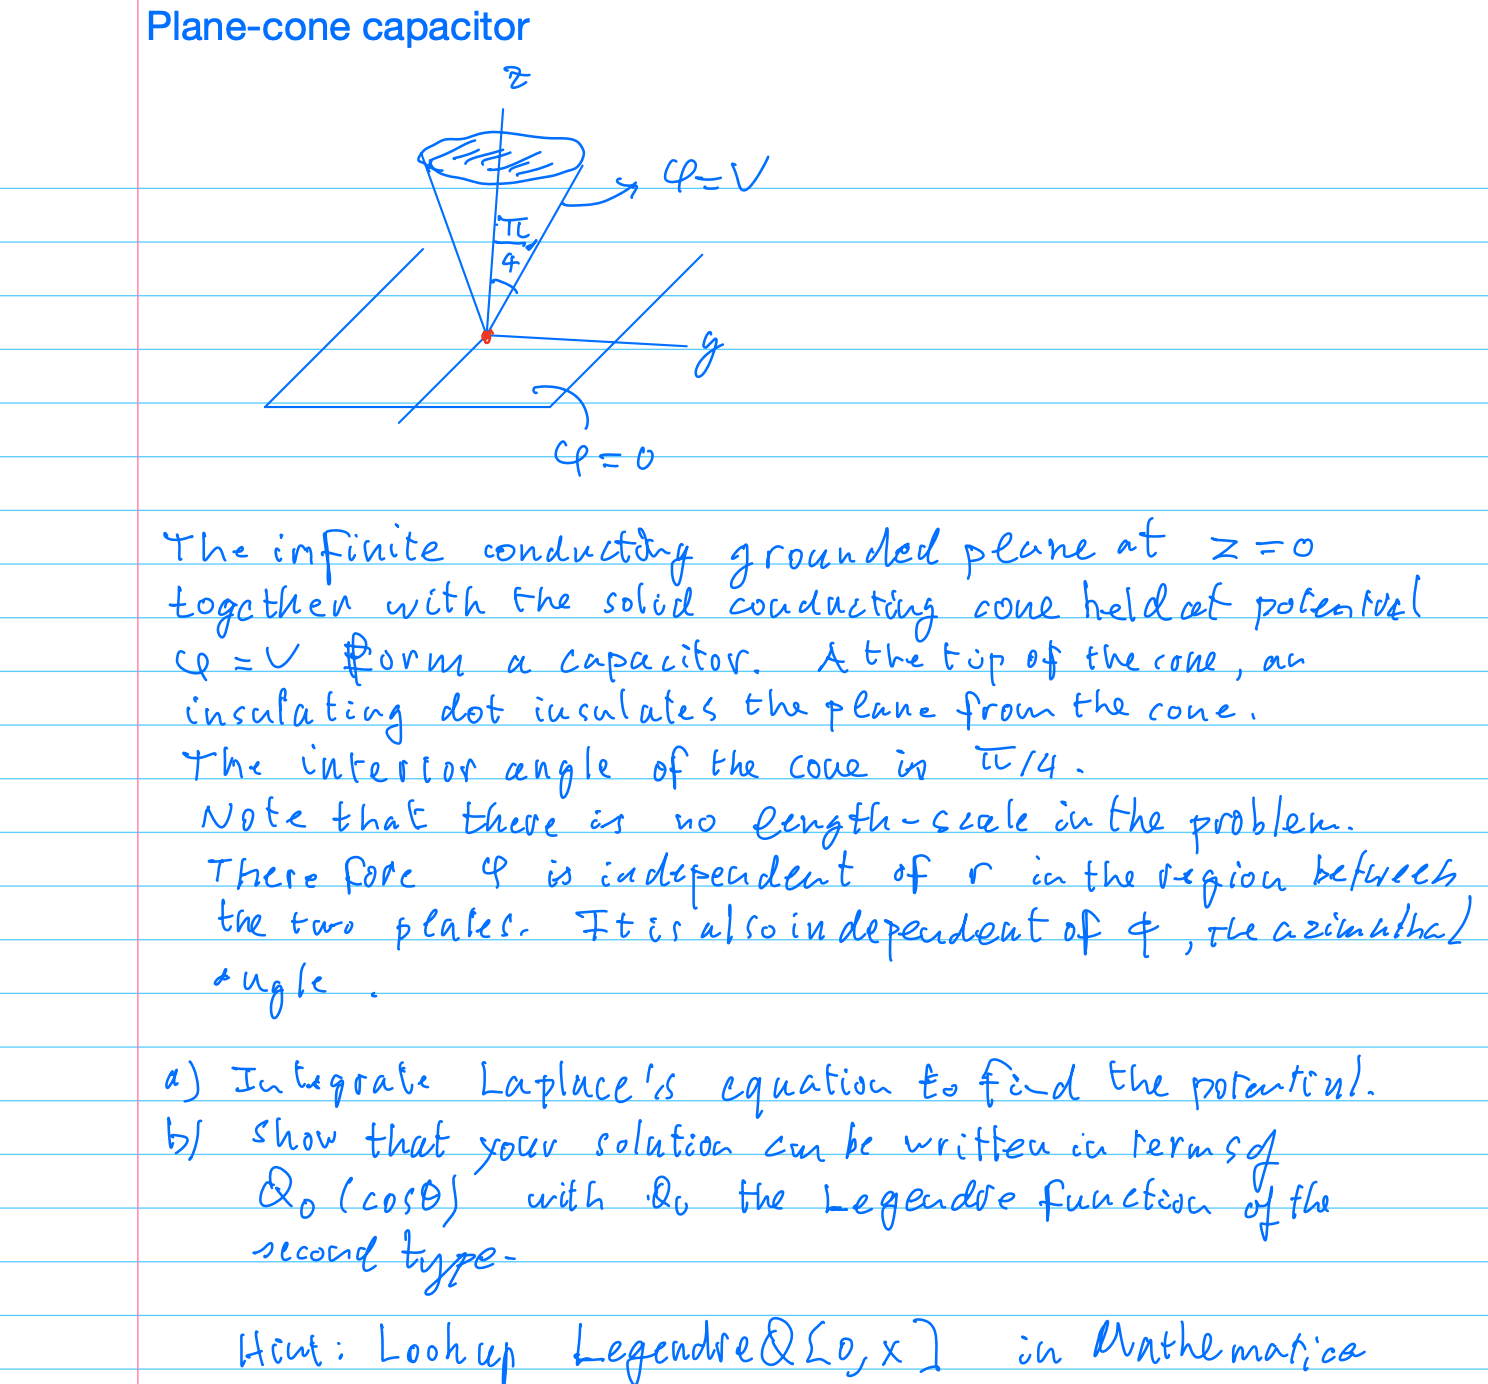 Plane-cone capacitor
z
φ=V
π
4
y
φ=0
The infinite conducting grounded plane at z=0
together with the solid conducting cone held at potential
φ=V form a capacitor. A the tip of the cone, an
insulating dot insulates the plane from the cone.
The interior angle of the cone is π/4.
Note that there is no length-scale in the problem.
Therefore φ is independent of r in the region between
the two plates. It is also independent of ϕ, the azimuthal
angle.
a) Integrate Laplace's equation to find the potential.
b) Show that your solution can be written in terms of
Q₀(cosθ) with Q₀ the Legendre function of the
second type.
Hint: Look up LegendreQ[0,x] in Mathematica